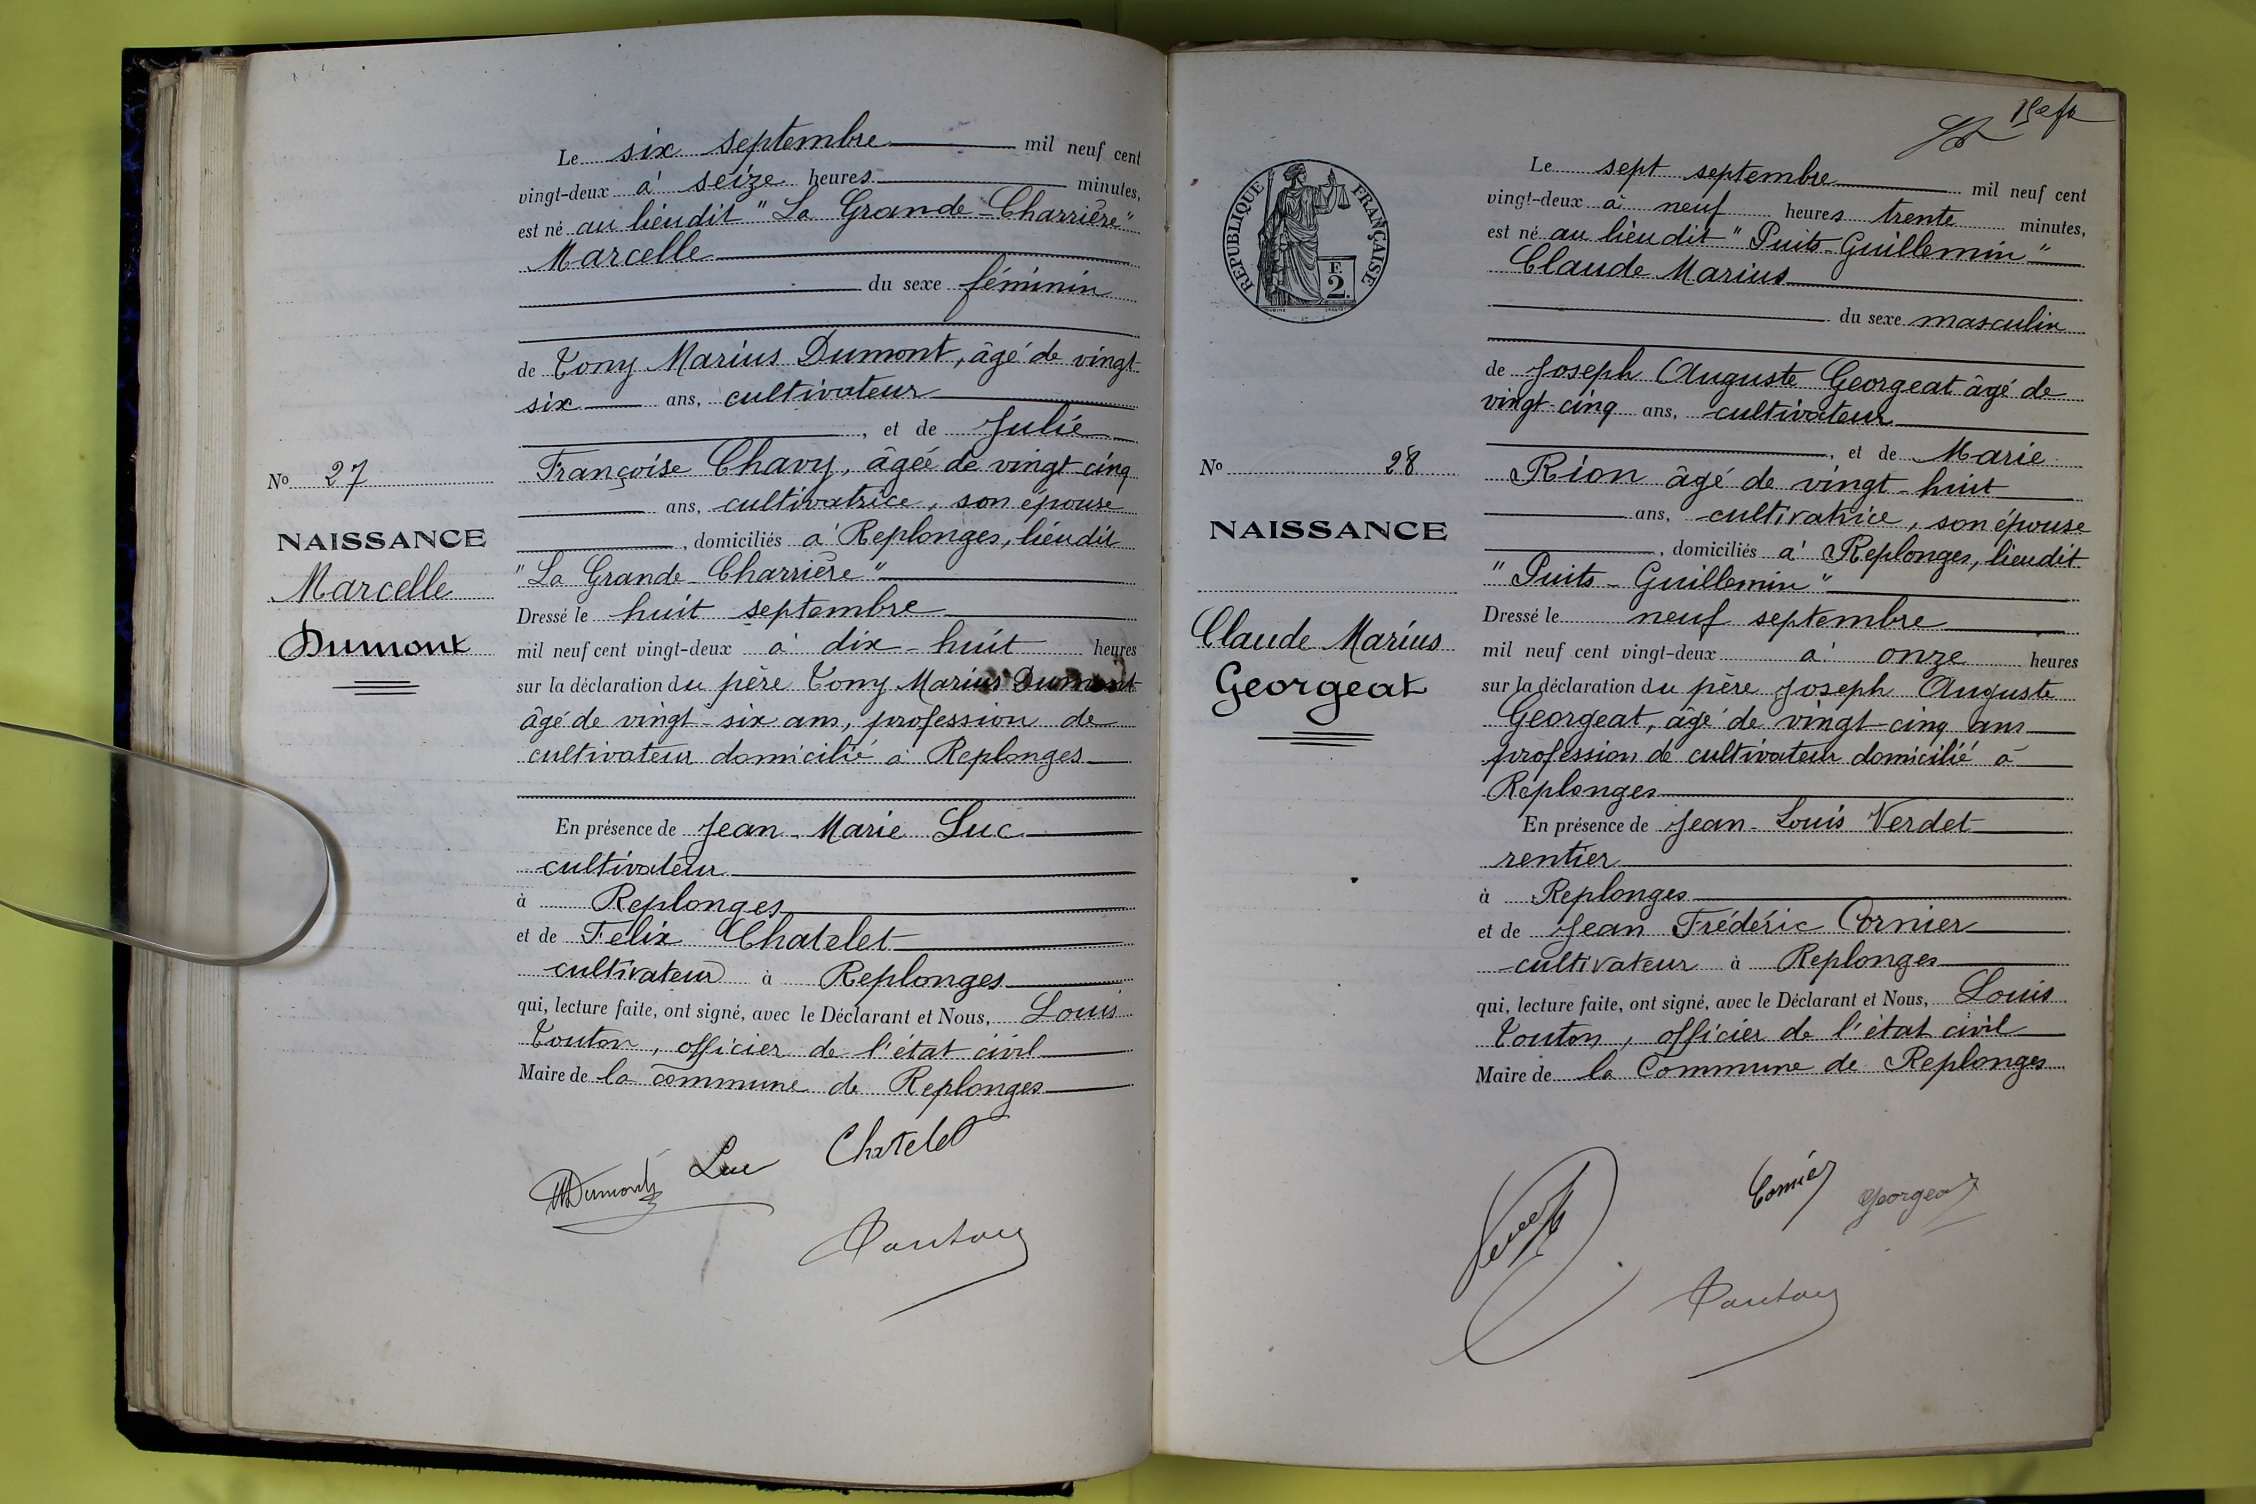 Le six septembre mil neuf cent
vingt-deux à seize heures minutes,
est né au lieudit "La Grande-Charrière"
Marcelle
du sexe féminin
de Tony Marius Dumont, âgé de vingt
six ans, cultivateur
, et de Julie
Françoise Chavy, âgée de vingt-cinq
ans, cultivatrice, son épouse
, domiciliés à Replonges, lieudit
"La Grande-Charrière"
Dressé le huit septembre
mil neuf cent vingt-deux à dix-huit heures
sur la déclaration du père Tony Marius Dumont
âgé de vingt-six ans, profession de
cultivateur domicilié à Replonges
En présence de Jean-Marie Luc
cultivateur
à Replonges
et de Félix Chatelet
cultivateur à Replonges
qui, lecture faite, ont signé, avec le Déclarant et Nous, Louis
Touton, officier de l'état civil
Maire de la commune de Replonges
MDumont Luc Chatelet
Touton
No 27
NAISSANCE
Marcelle
Dumont
RÉPUBLIQUE FRANÇAISE
F.
2.
No 28
NAISSANCE
Claude Marius
Georgeat
Le sept septembre mil neuf cent
vingt-deux à neuf heures trente minutes,
est né au lieudit "Puits-Guillemin"
Claude Marius
du sexe masculin
de Joseph Auguste Georgeat âgé de
vingt-cinq ans, cultivateur
, et de Marie
Rion âgé de vingt-huit
ans, cultivatrice, son épouse
, domiciliés à Replonges, lieudit
"Puits-Guillemin"
Dressé le neuf septembre
mil neuf cent vingt-deux à onze heures
sur la déclaration du père Joseph Auguste
Georgeat, âgé de vingt-cinq ans
profession de cultivateur domicilié à
Replonges
En présence de Jean-Louis Verdet
rentier
à Replonges
et de Jean Frédéric Cornier
cultivateur à Replonges
qui, lecture faite, ont signé, avec le Déclarant et Nous, Louis
Touton, officier de l'état civil
Maire de la Commune de Replonges
Cornier Georgeat
Touton